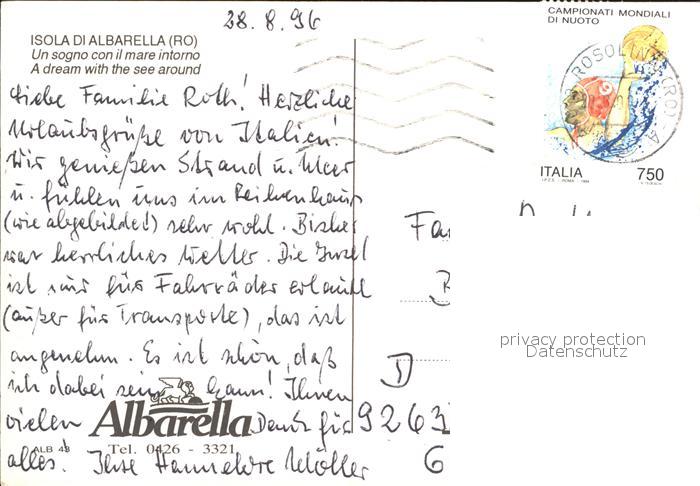 28.8.96
ISOLA DI ALBARELLA (RO)
Un sogno con il mare intorno
A dream with the see around
Liebe Familie Roth! Herzliche
Urlaubsgrüße von Italien!
Wir genießen Strand u. Meer
u. fühlen uns im Reihenhaus
(wie abgebildet) sehr wohl. Bisher
war herrliches Wetter. Die Insel
ist nur für Fahrräder erlaubt
(außer für Transporte), das ist
angenehm. Es ist schön, daß
ich dabei sein kann! Ihnen
vielen Dank für
alles! Ihre Hannelore Möller
Albarella
ALB 43
Tel. 0426 - 3321
CAMPIONATI MONDIALI
DI NUOTO
ROSOLINA (RO)
ITALIA 750
I.P.Z.S. - ROMA - 1994
Fa
D
9263
G
privacy protection
Datenschutz